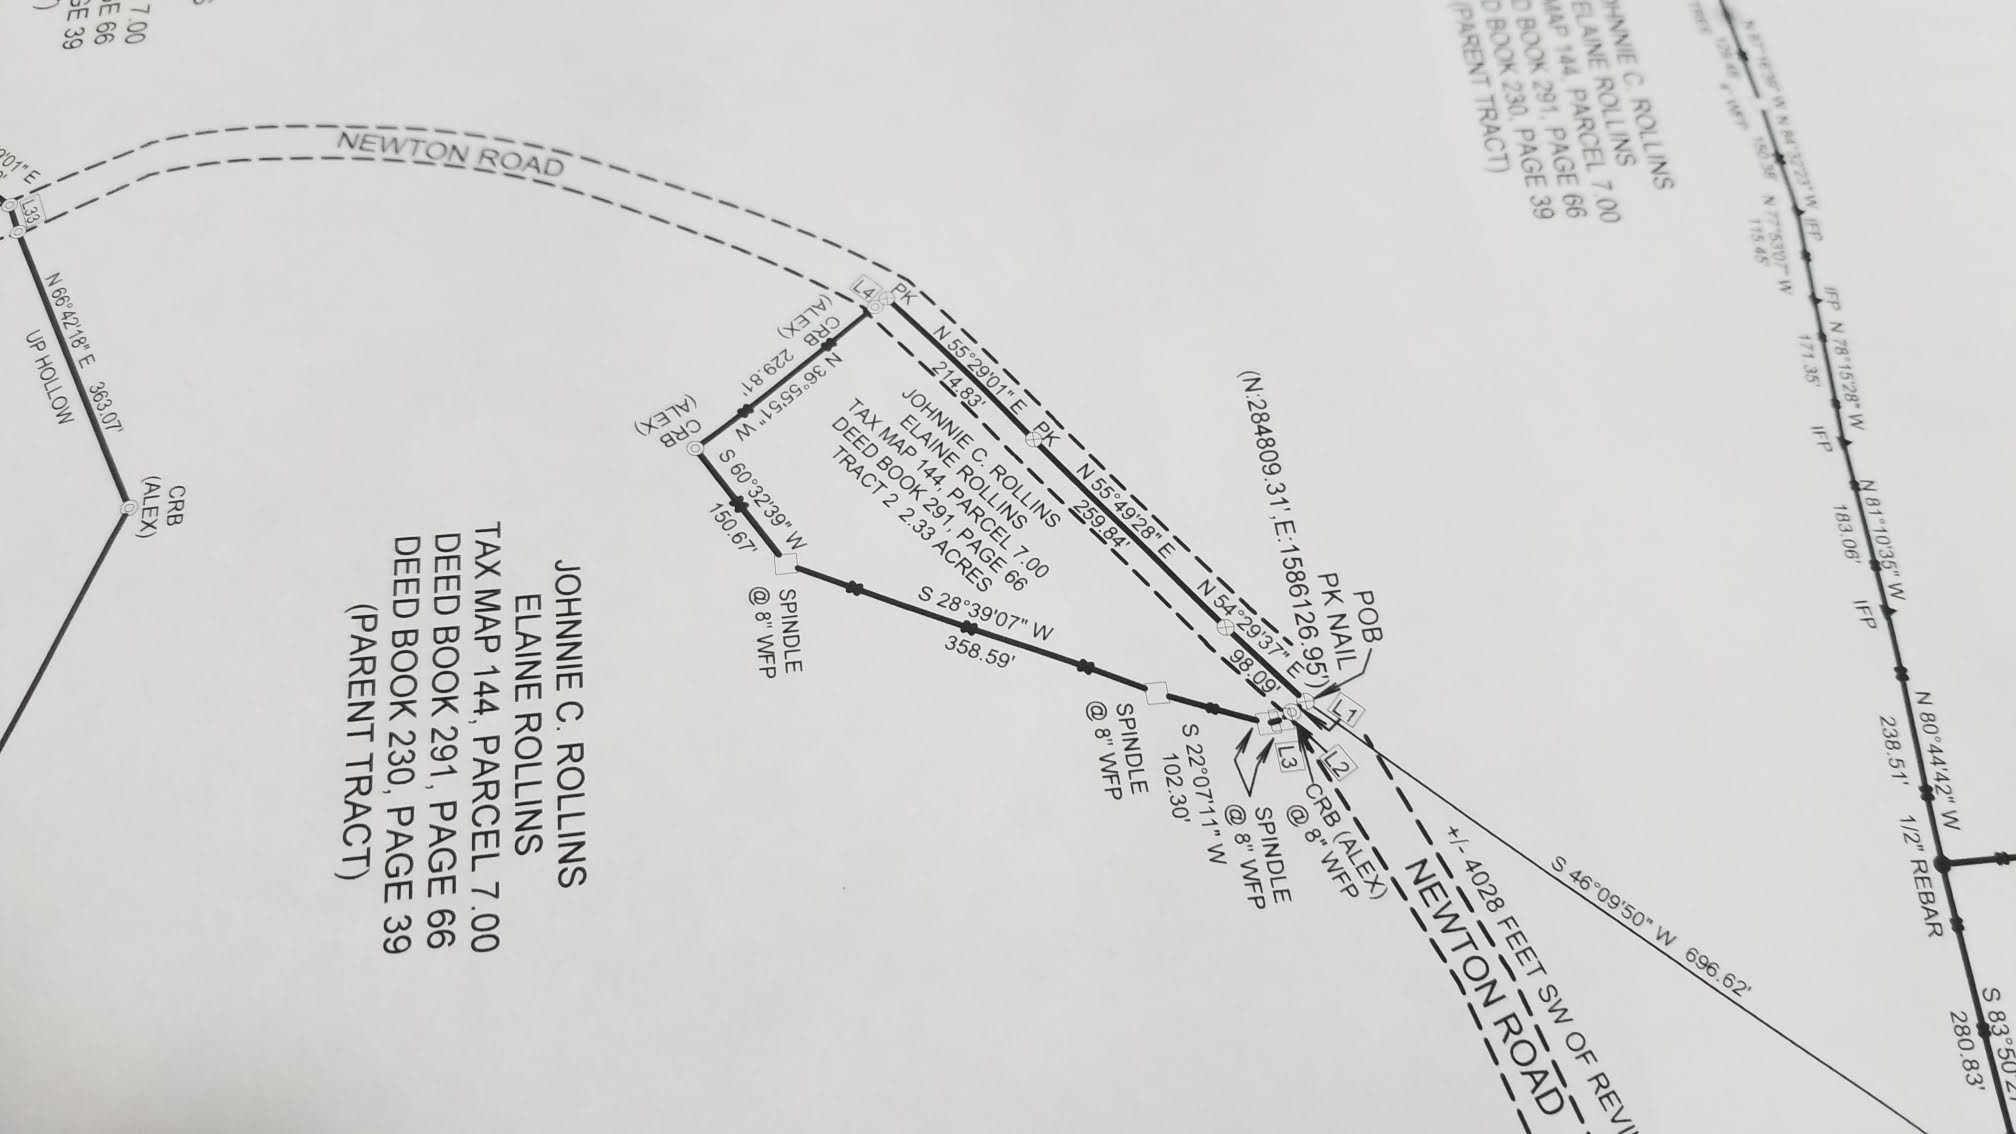 7.00
E 66
GE 39
NEWTON ROAD
L33
N 66°42'18" E 363.07'
UP HOLLOW
CRB
(ALEX)
JOHNNIE C. ROLLINS
ELAINE ROLLINS
TAX MAP 144, PARCEL 7.00
DEED BOOK 291, PAGE 66
DEED BOOK 230, PAGE 39
(PARENT TRACT)
L4
PK
CRB
(ALEX)
N 36°55'51" W
229.81'
CRB
(ALEX)
S 60°32'39" W
150.67'
SPINDLE
@ 8" WFP
N 55°29'01" E
214.83'
PK
JOHNNIE C. ROLLINS
ELAINE ROLLINS
TAX MAP 144, PARCEL 7.00
DEED BOOK 291, PAGE 66
TRACT 2 2.33 ACRES
N 55°49'28" E
259.84'
N 54°29'37" E
98.09'
S 28°39'07" W
358.59'
SPINDLE
@ 8" WFP
S 22°07'11" W
102.30'
POB
PK NAIL
(N:284809.31', E:1586126.95')
L1
L2
L3
CRB (ALEX)
@ 8" WFP
SPINDLE
@ 8" WFP
+/- 4028 FEET SW OF REVI
NEWTON ROAD
S 46°09'50" W 696.62'
HNNIE C. ROLLINS
ELAINE ROLLINS
MAP 144, PARCEL 7.00
D BOOK 291, PAGE 66
D BOOK 230, PAGE 39
(PARENT TRACT)
IFP
N 77°53'07" W
115.45'
IFP
N 78°15'28" W
171.35'
IFP
N 81°10'35" W
183.06'
IFP
N 80°44'42" W
238.51'
1/2" REBAR
S 83°50'
280.83'